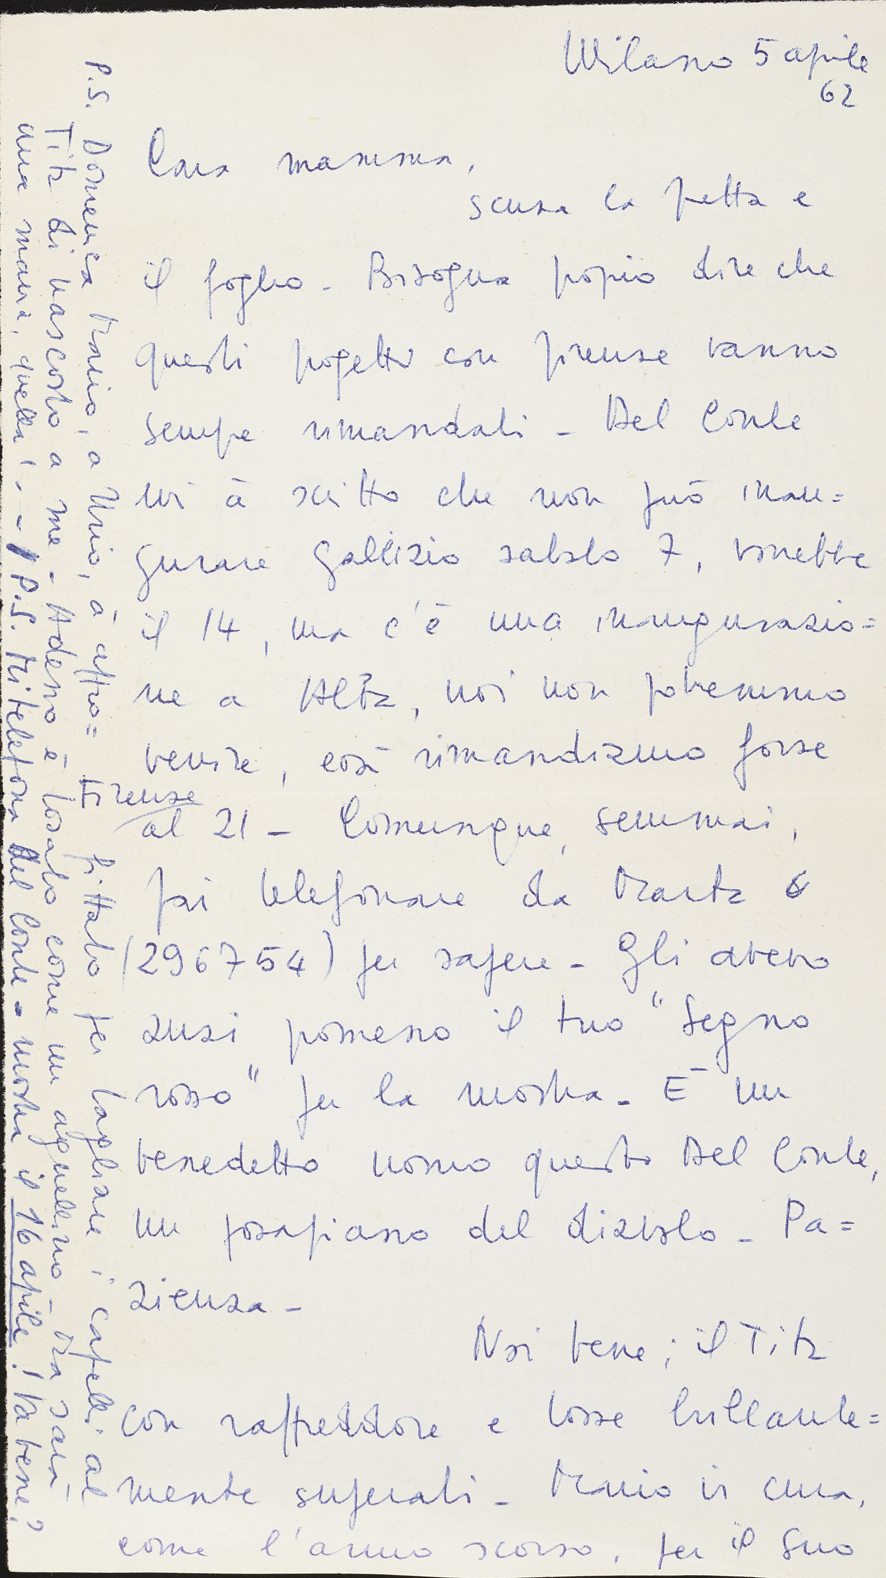 Milano 5 aprile
62
Cara mamma,
scusa la fretta e
il foglio - Bisogna proprio dire che
questi progetti con Firenze vanno
sempre rimandati - Del Conte
mi à scritto che non può inau=
gurare Gallizio sabato 7, vorrebbe
il 14, ma c'è una inaugurazio=
ne a Alba, noi non potremmo
venire, così rimandiamo forse
al 21 - Comunque, semmai,
fai telefonare da Marta
(296754) per sapere - Gli avevo
anzi promesso il tuo "Segno
rosso" per la mostra - È un
benedetto uomo questo Del Conte,
un posapiano del diavolo - Pa=
zienza -
Noi bene; il Tita
con raffreddore e tosse brillante=
mente superati - Mario in cura,
come l'anno scorso, per il suo
P.S. Domenica Mario, a Unio, à appro=
fittato per tagliare i capelli al
Tita di nascosto a me - Adesso è tosato come un agnellino - Ma sarà
una mania, quella! -
P.S. Mi telefona Del Conte - mostra il 16 aprile! Va bene?
Firenze